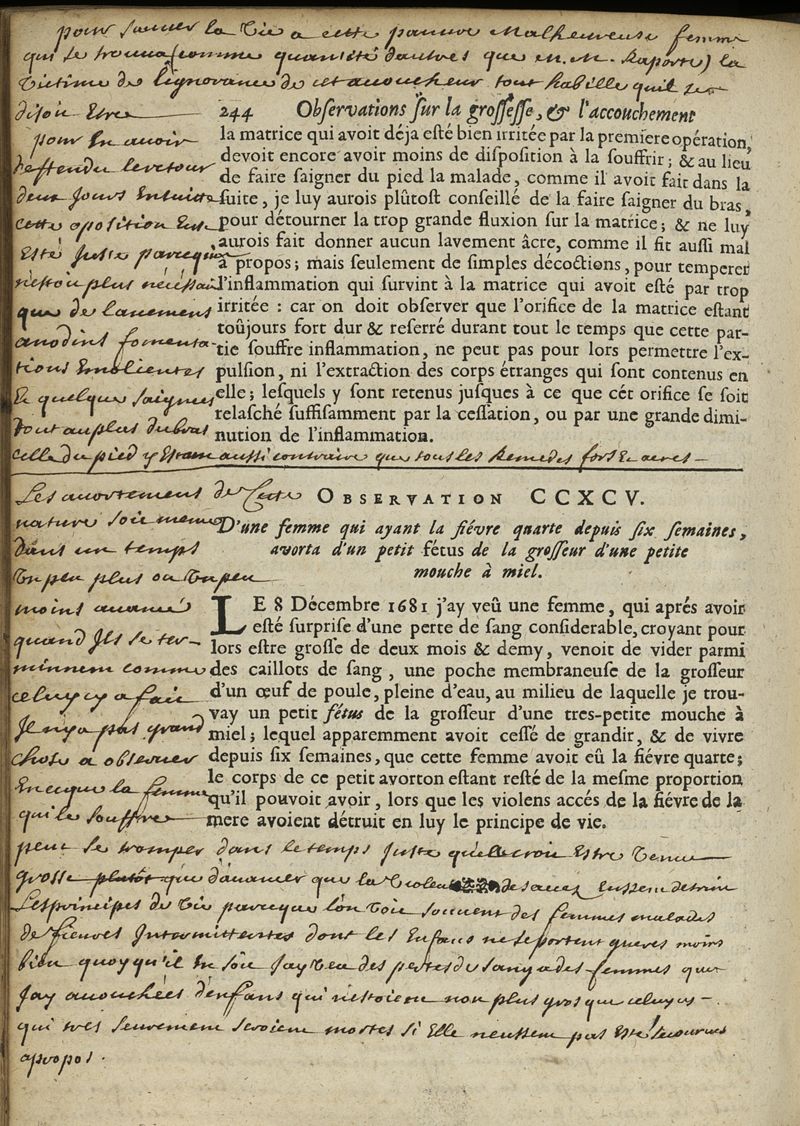 pour sauver la vie a cette pauvre malheureuse femme
qui se trouva (comme quantité dautres que m. m. raporte) la
victime de lignorance de cet acoucheur tout habille quil se
disoit estre
244 Obſervations ſur la groſſeſſe, & l'accouchement
la matrice qui avoit déja eſté bien irritée par la premiere opération,
devoit encore avoir moins de diſpoſition à la ſouffrir; & au lieu
de faire ſaigner du pied la malade, comme il avoit fait dans la
ſuite, je luy aurois plûtoſt conſeillé de la faire ſaigner du bras,
pour détourner la trop grande fluxion ſur la matrice; & ne luy
aurois fait donner aucun lavement âcre, comme il fit auſſi mal
à propos; mais ſeulement de ſimples décoctions, pour temperer
l'inflammation qui ſurvint à la matrice qui avoit eſté par trop
irritée : car on doit obſerver que l'orifice de la matrice eſtant
toûjours fort dur & reſerré durant tout le temps que cette par-
tie ſouffre inflammation, ne peut pas pour lors permettre l'ex-
pulſion, ni l'extraction des corps étranges qui ſont contenus en
elle; leſquels y ſont retenus juſques à ce que cét orifice ſe ſoit
relaſché ſuffiſamment par la ceſſation, ou par une grande dimi-
nution de l'inflammation.
pour en avoir
deffendu le retour
deux jours ensuitte
cette oposition est
esté juste parcequil
nestoit plus necessaire
que de lavemens
anodins fomenta-
tions emolientes
et quelque saignée
tout au plus du bras
celle du pied y estant aussi contraire que tous les remedes forts et acres
OBSERVATION CCXCV.
D'une femme qui ayant la fiévre quarte depuis ſix ſemaines,
avorta d'un petit fétus de la groſſeur d'une petite
mouche à miel.
LE 8 Décembre 1681 j'ay veû une femme, qui aprés avoir
eſté ſurpriſe d'une perte de ſang conſiderable, croyant pour
lors eſtre groſſe de deux mois & demy, venoit de vider parmi
des caillots de ſang, une poche membraneuſe de la groſſeur
d'un œuf de poule, pleine d'eau, au milieu de laquelle je trou-
vay un petit fétus de la groſſeur d'une tres-petite mouche à
miel; lequel apparemment avoit ceſſé de grandir, & de vivre
depuis ſix ſemaines, que cette femme avoit eû la fiévre quarte;
le corps de ce petit avorton eſtant reſté de la meſme proportion
qu'il pouvoit avoir, lors que les violens accés de la fiévre de la
mere avoient détruit en luy le principe de vie.
Les avortemens de cette
nature soit meme
dans un temps
un peu plus ou un peu
moins avancé
quand ils se ter-
minnent comme
celuy cy a fait
Il ny a pas grand
chose a observer
en ce que la femme
qui le souffre
peut se tromper dans le temps juste quelle croit estre venue
grosse plutôt que davancer que la violence des accez eussent detruit
les principes de vie parceque lon voit souvent des femmes malades
de fievres intermittentes dont les enfans ne se portent gueres moins
bien quoy qu'il en soit jay veu des pertes de sang a des femmes que
jay acouchées denfans qui nestoient non plus gros que celuy cy
qui tres seurement seroient mortes si elle neussent pas esté secourues
apropos.